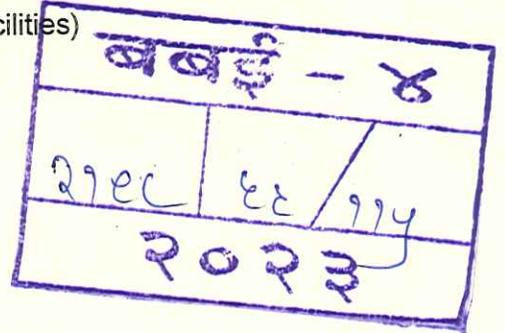 cilities)
बबई - ४
२१९८ ६६ / ११५
२०२३